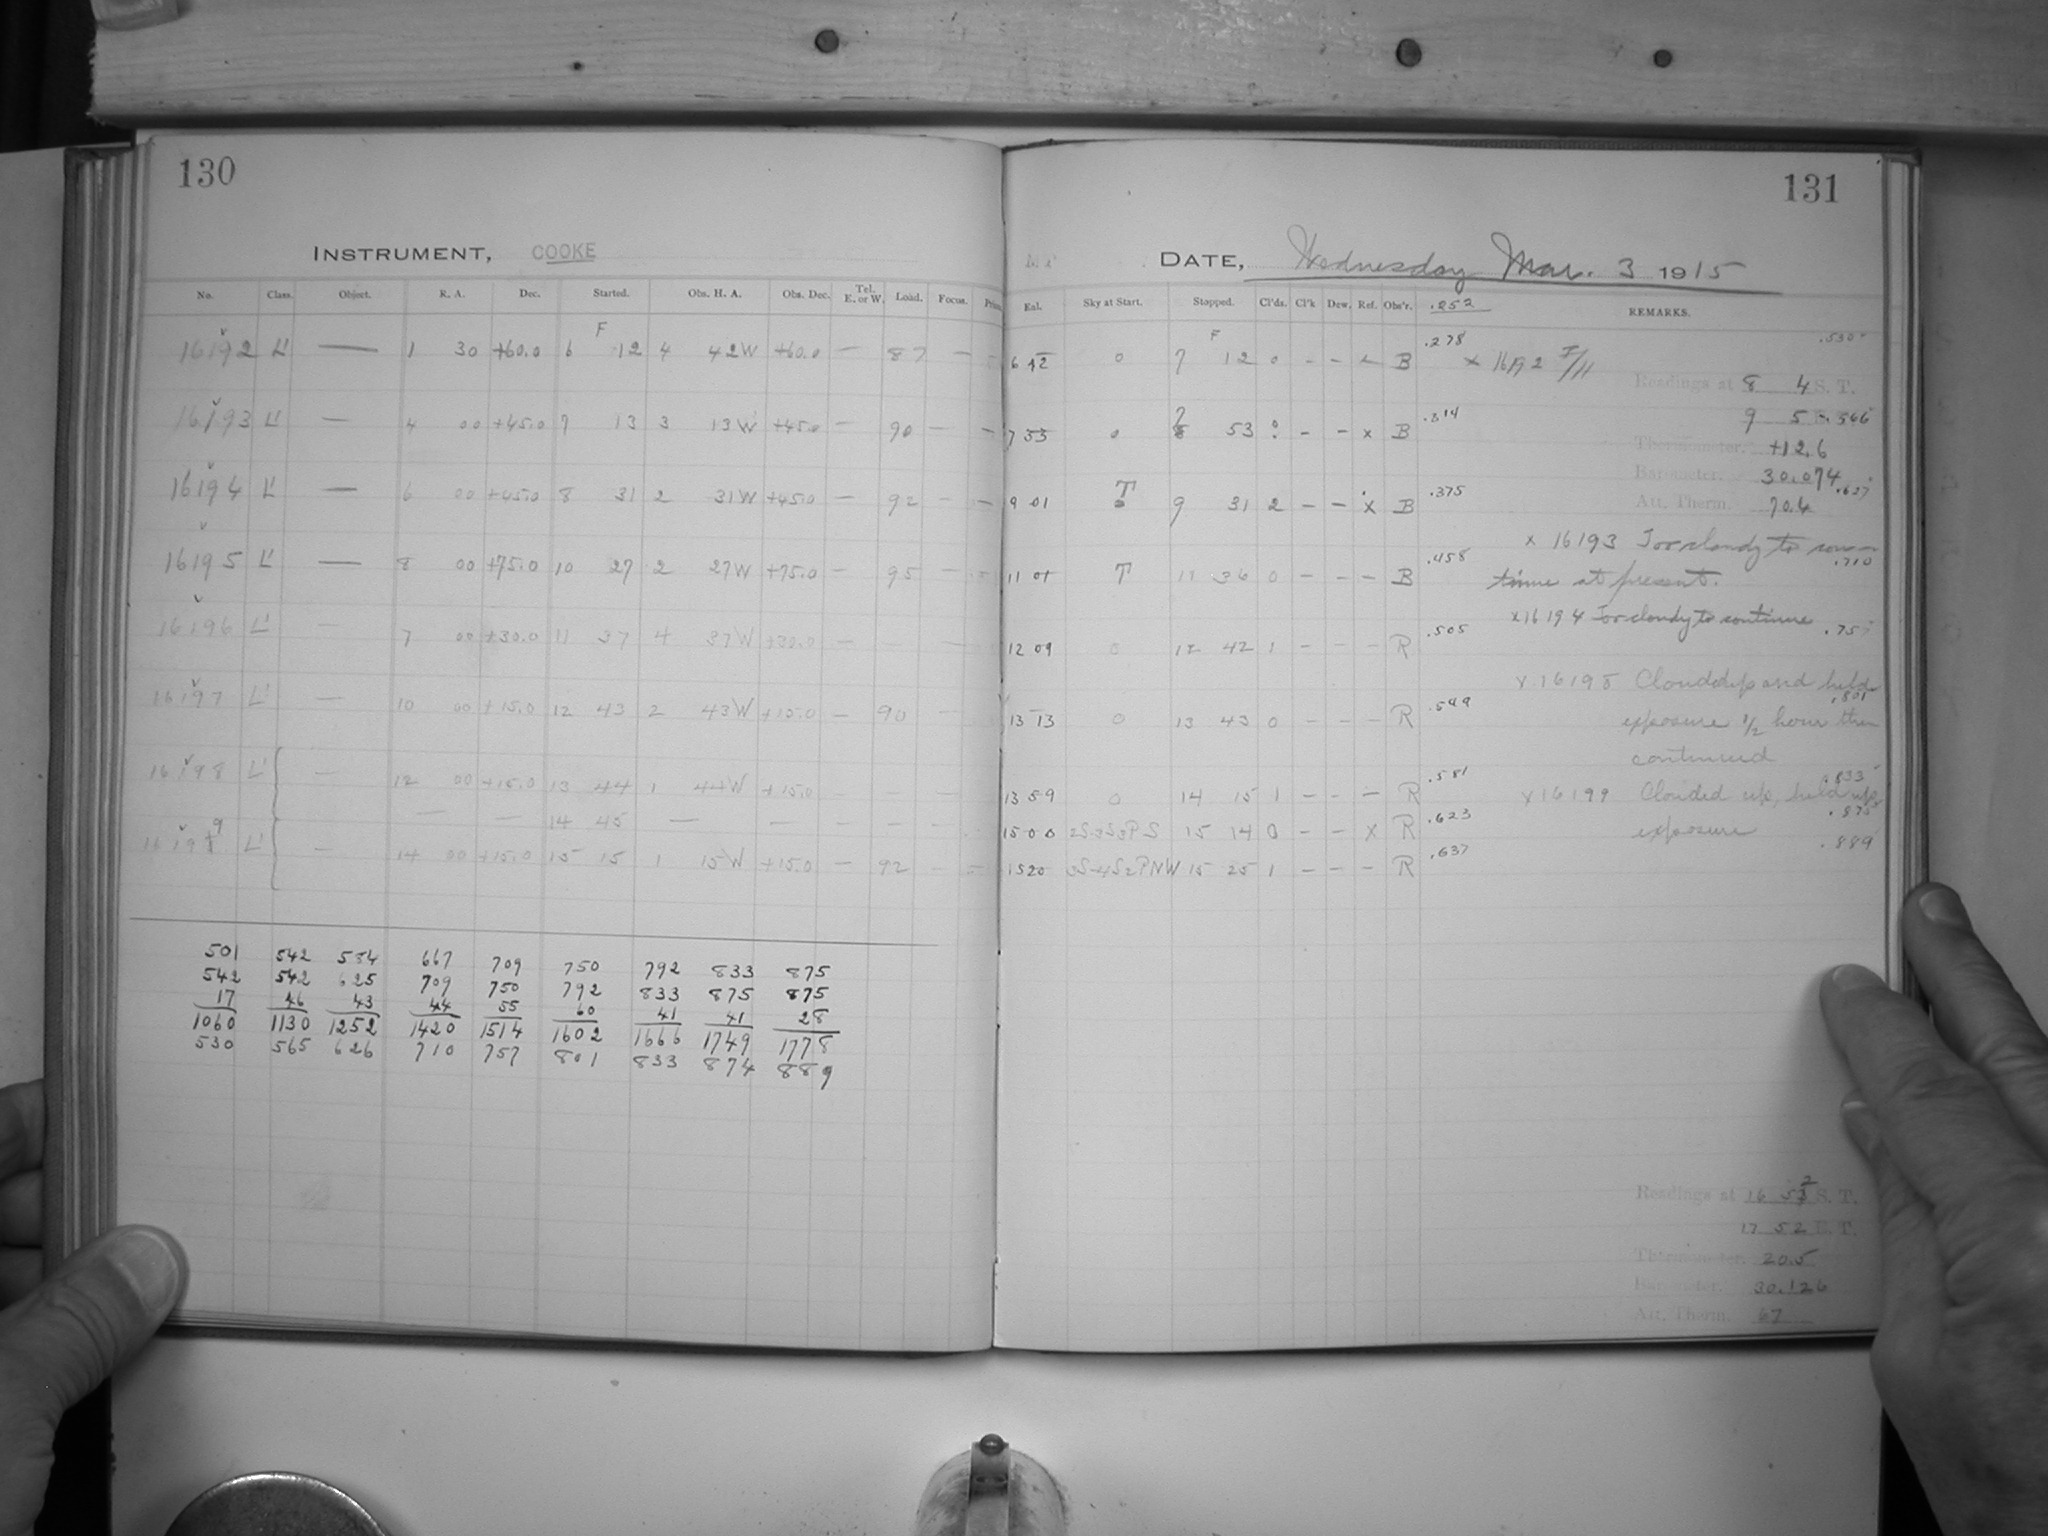 130
INSTRUMENT, COOKE
No. Class. Object. R. A. Dec. Started. Obs. H. A. Obs. Dec. Tel. E. or W. Load. Focus.
F
16192 L' — 1 30 +60.0 6 12 4 42W +60.0 — 87 —
16193 L' — 4 00 +45.0 7 13 3 13W +45.0 — 90 — —
16194 L' — 6 00 +45.0 8 31 2 31W +45.0 — 92 — —
16195 L' — 8 00 +75.0 10 27 2 27W +75.0 — 95 —
16196 L' — 7 00 +30.0 11 37 4 37W +30.0 — — —
16197 L' — 10 00 +15.0 12 43 2 43W +15.0 — 90 —
16198 L' — 12 00 +15.0 13 44 1 44W +15.0 — — —
— — 14 45 — — — — —
16199 L' — 14 00 +15.0 15 15 1 15W +15.0 — 92 —
501 542 584 667 709 750 792 833 875
542 542 625 709 750 792 833 875 875
17 46 43 44 55 60 41 41 28
1060 1130 1252 1420 1514 1602 1666 1749 1778
530 565 626 710 757 801 833 874 889
131
DATE, Wednesday Mar. 3 1915
Eal. Sky at Start. Stopped. Cl'ds. Cl'k Dew. Ref. Obs'r. .252 REMARKS.
F .278 .530
6 42 0 7 12 0 – – – B x 16192 F/11
Readings at 8 4 S. T.
.314 9 5 .566
7 53 0 7 53 – – x B
Thermometer. +12.6
Barometer. 30.074
.375 .627
9 01 T 9 31 2 – – x B Att. Therm. 70.4
x 16193 Too cloudy to con-
.458 .710
11 01 T 11 36 0 – – – B tinue at present.
x16194 Too cloudy to continue
.505 .757
12 09 0 12 42 1 – – – R
x 16195 Clouded up and held
.549 .801
13 13 0 13 43 0 – – – R exposure 1/2 hour then
continued
.581 .833
13 59 0 14 15 1 – – – R x16199 Clouded up, held up
.623 .875
15 00 15 14 0 – – x R exposure
.637 .889
15 20 15 25 1 – – – R
Readings at 16 52 S. T.
17 52 E. T.
Thermometer. 20.5
Barometer. 30.126
Att. Therm. 67